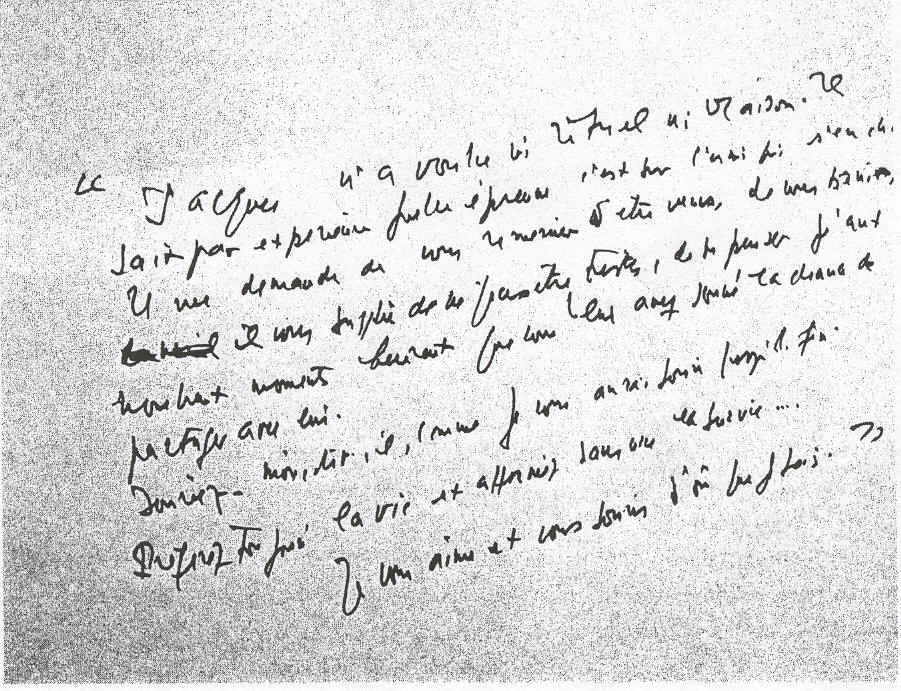 « Jacques n'a voulu ni rituel ni oraison. Il
sait par expérience quelle épreuve c'est pour l'ami qui s'en ch.
Il me demande de vous remercier d'être venus, de vous bénir,
il vous supplie de ne pas être tristes, de ne penser qu'aux
nombreux moments heureux que vous lui avez donné la chance de
partager avec lui.
Souriez-moi, dit-il, comme je vous aurai souri jusqu'à la fin.
Préférez toujours la vie et affirmez sans cesse la survie ....
Je vous aime et vous souris d'où que je sois. »